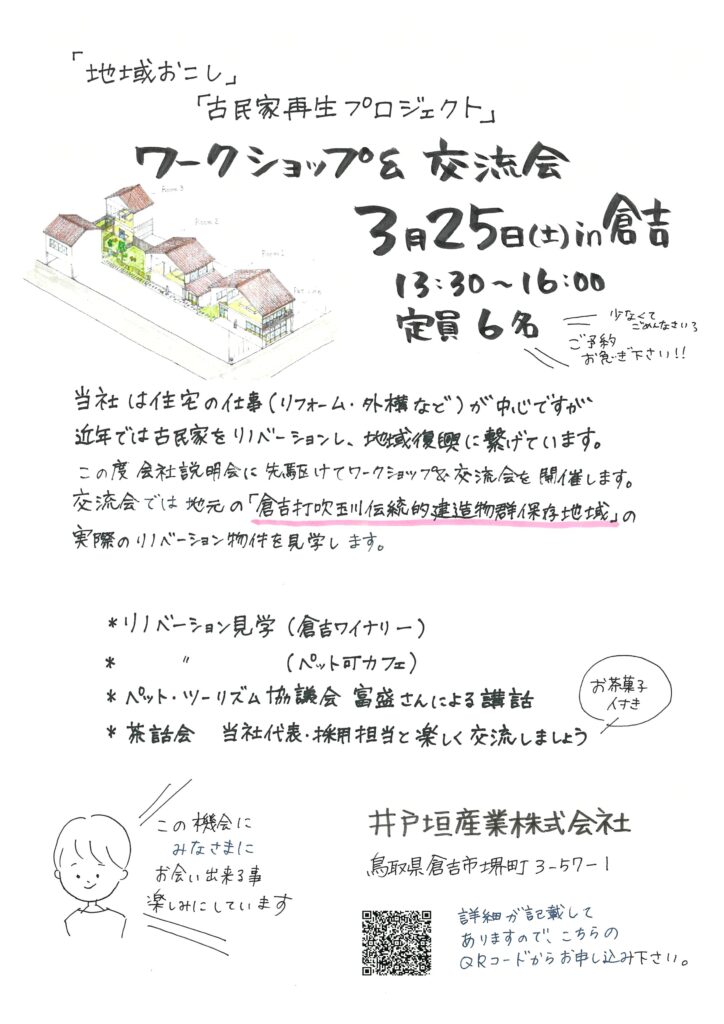 「地域おこし」
「古民家再生プロジェクト」
ワークショップ& 交流会
3月25日(土)in倉吉
13:30～16:00
定員6名
少なくて
ごめんなさいっ
ご予約
お急ぎ下さい!!
Room 3
Room 2
Room 1
当社は住宅の仕事(リフォーム・外構など)が中心ですが
近年では古民家をリノベーションし、地域復興に繋げています。
この度 会社説明会に先駆けてワークショップ&交流会を開催します。
交流会では地元の「倉吉打吹玉川伝統的建造物群保存地域」の
実際のリノベーション物件を見学します。
*リノベーション見学(倉吉ワイナリー)
* 〃 (ペット可カフェ)
*ペット・ツーリズム協議会 富盛さんによる講話
*茶話会 当社代表・採用担当と楽しく交流しましょう
お茶菓子
付き
この機会に
みなさまに
お会い出来る事
楽しみにしています
井戸垣産業株式会社
鳥取県倉吉市堺町3-57-1
詳細が記載して
ありますので、こちらの
QRコードからお申し込み下さい。